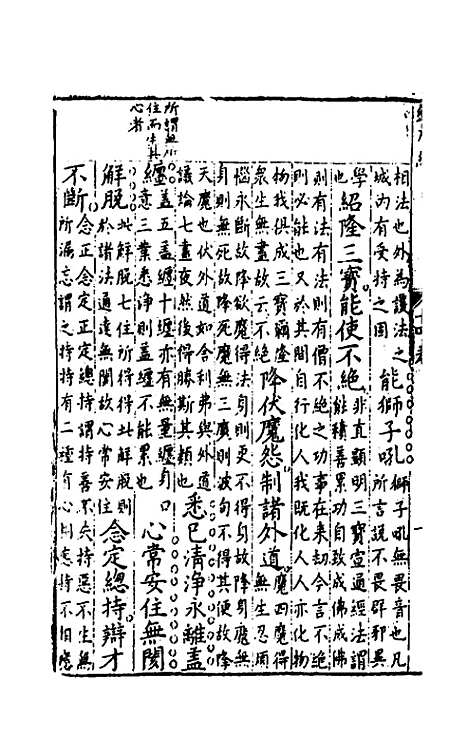 所謂無所
住而生其
心者
相法也外為護法之
城内有受持之固
能獅子吼
獅子吼無畏音也凡
所言說不畏群邪異
學
也
紹隆三寶能使不絕
非直顯明三寶宣通經法謂
能積善累功自致成佛成佛
則有法有法則有僧不絕之功事在來劫今言不絕
則必能也又於其間自行化人我既化人人亦化物
物我俱成三寶彌隆
衆生無盡故云不絕
降伏魔怨制諸外道
魔四魔得
無生忍煩
惱永斷故降欲魔得法身則更不得身故降身魔無
身則無死故降死魔無三魔則波旬不得其便故降
天魔也伏外道如舍利弗與外道
議論七晝夜然後得勝斯其類也
悉已清淨永離蓋
纏
蓋五蓋纏十纏亦有無量纏身口
意三業悉淨則蓋纏不能累也
心常安住無閡
解脫
此解脫七住所得得此解脫則
於諸法通達無閡故心常安住
念定總持辯才
不斷
念正念定正定總持謂持善不失持惡不生無
所漏忘謂之持持有二種有心相應持不相應